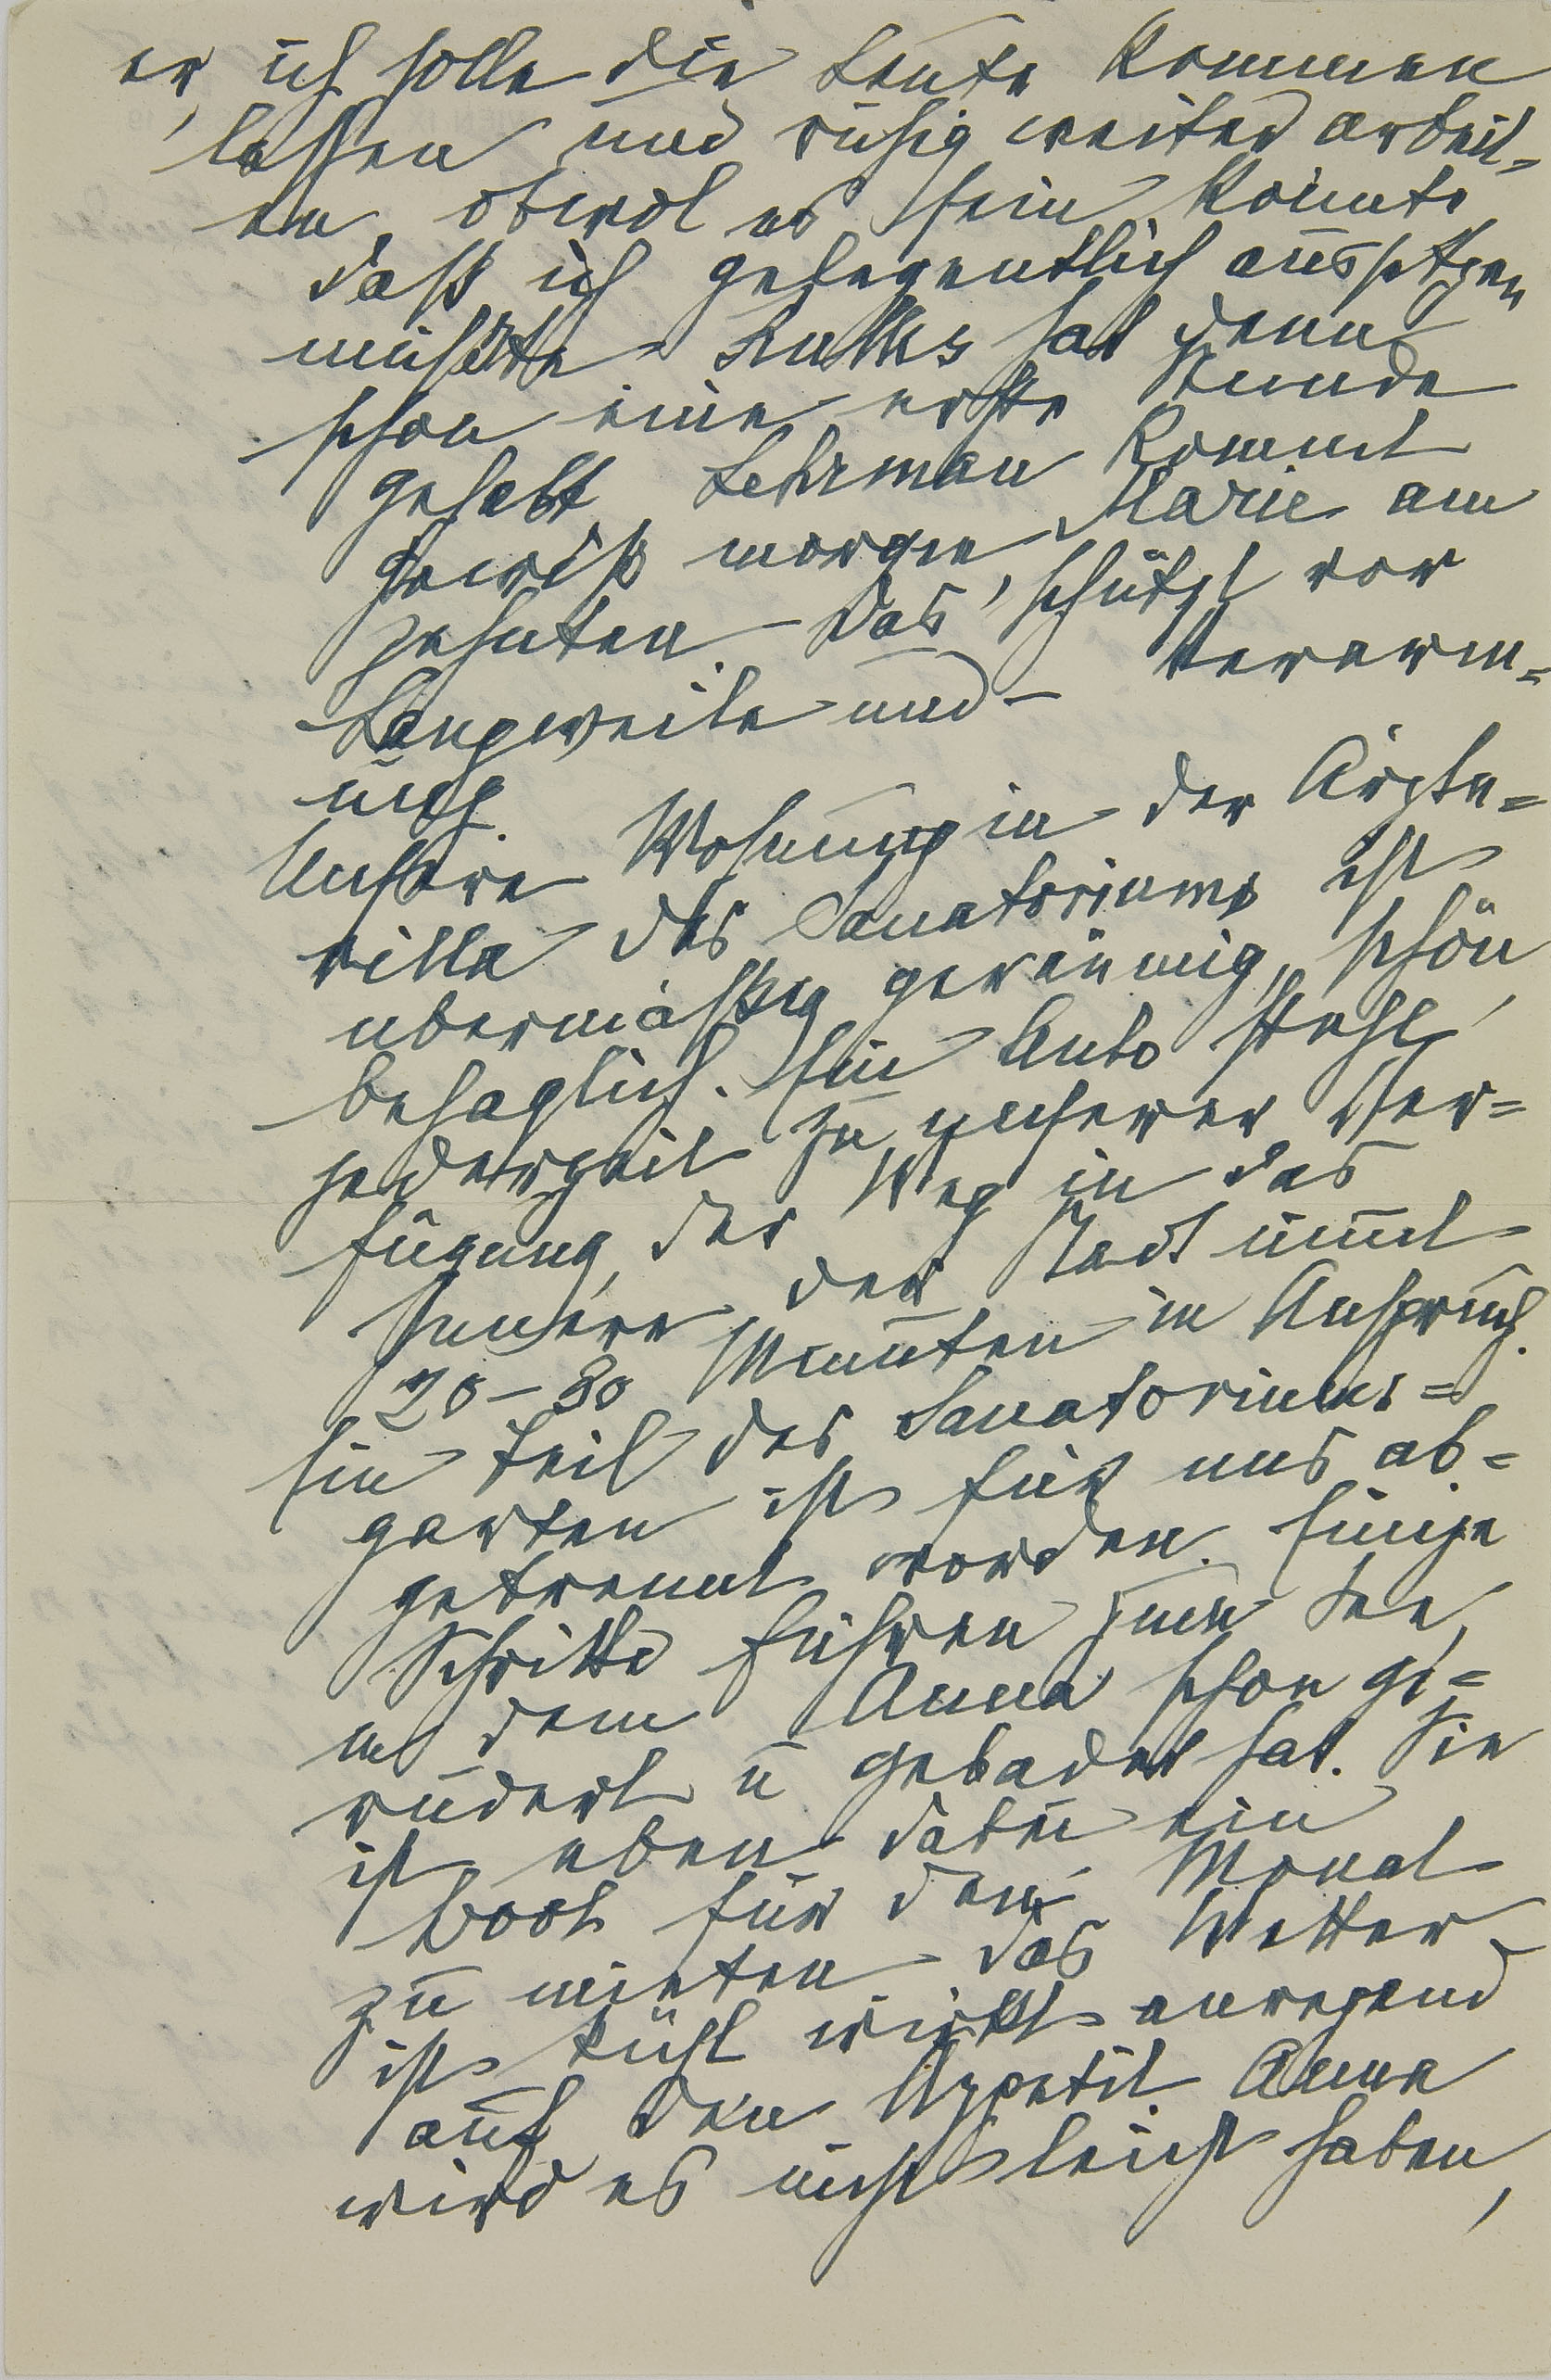 er, ich solle die Leute kommen
lassen und ruhig weiter arbeit=
en, obwol es sein könnte
daß ich gelegentlich aussetzen
müßte. hat denn
schon eine erste Stunde
gehabt Lehrman kommt
gewiß morgen, Marie am
zehnten. Das schützt vor
Langweile und – Verarm=
ung.
Unsere Wohnung in der Ärzte=
villa des Sanatoriums ist
übermäßig geräumig, schön,
behaglich. Ein Auto steht
jederzeit zu unserer Ver=
fügung, der Weg in das
Innere der Stadt nimmt
20–30 Minuten in Anspruch.
Ein Teil des Sanatoriums=
garten ist für uns ab=
getrennt worden. Einige
Schritte führen zum See,
in dem Anna schon ge=
rudert u gebadet hat. Sie
ist eben dabei ein
Boot für den Monat
zu mieten. Das Wetter
ist kühl wirkt anregend
auf den Appetit. Anna
wird es nicht leicht haben,